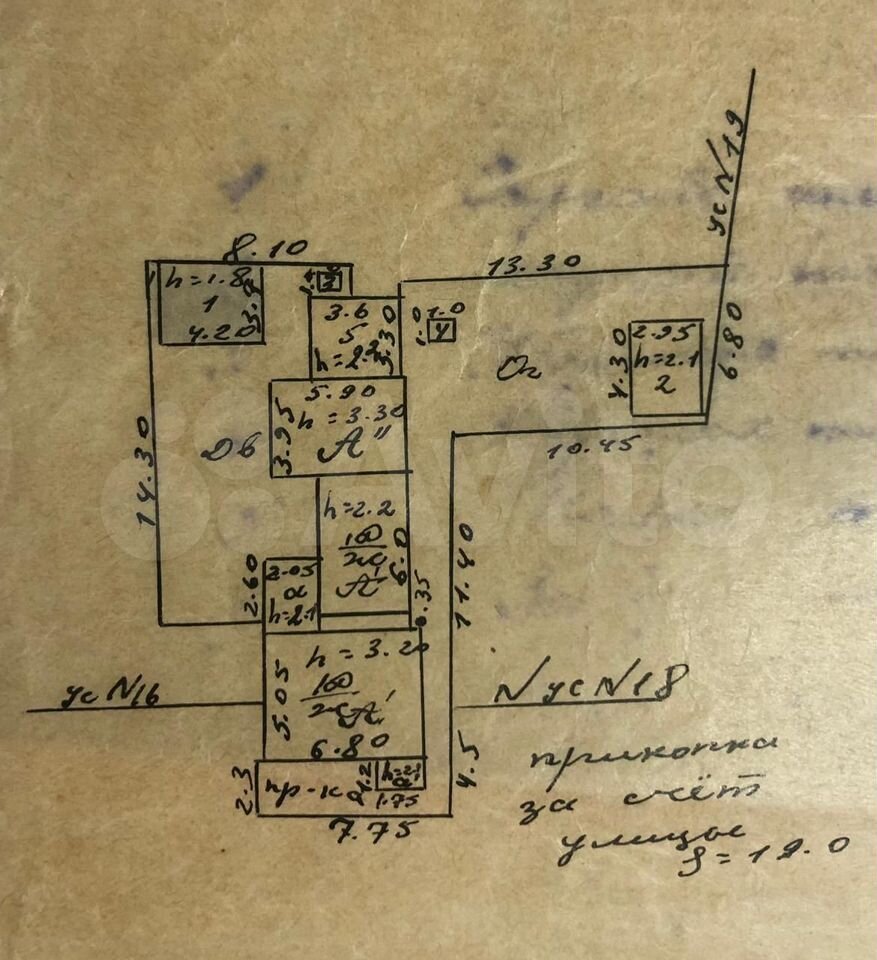 ус N19
8.10
13.30
h=1.8
1
4.20
3.6
5
3.30
h=2.2
1.0
1.0
4
2.95
h=2.1
2
4.30
6.80
Ог
5.90
h=3.30
А"
3.95
Дв
10.45
14.30
h=2.2
6.0
11.40
2.60
2.05
а
h=2.1
0.35
h=3.20
5.05
6.80
ус N16
N ус N18
2.3
пр-к
1.2
h=2.1
а
1.75
4.5
7.75
прикопка
за счёт
улицы
S=19.0
Avito